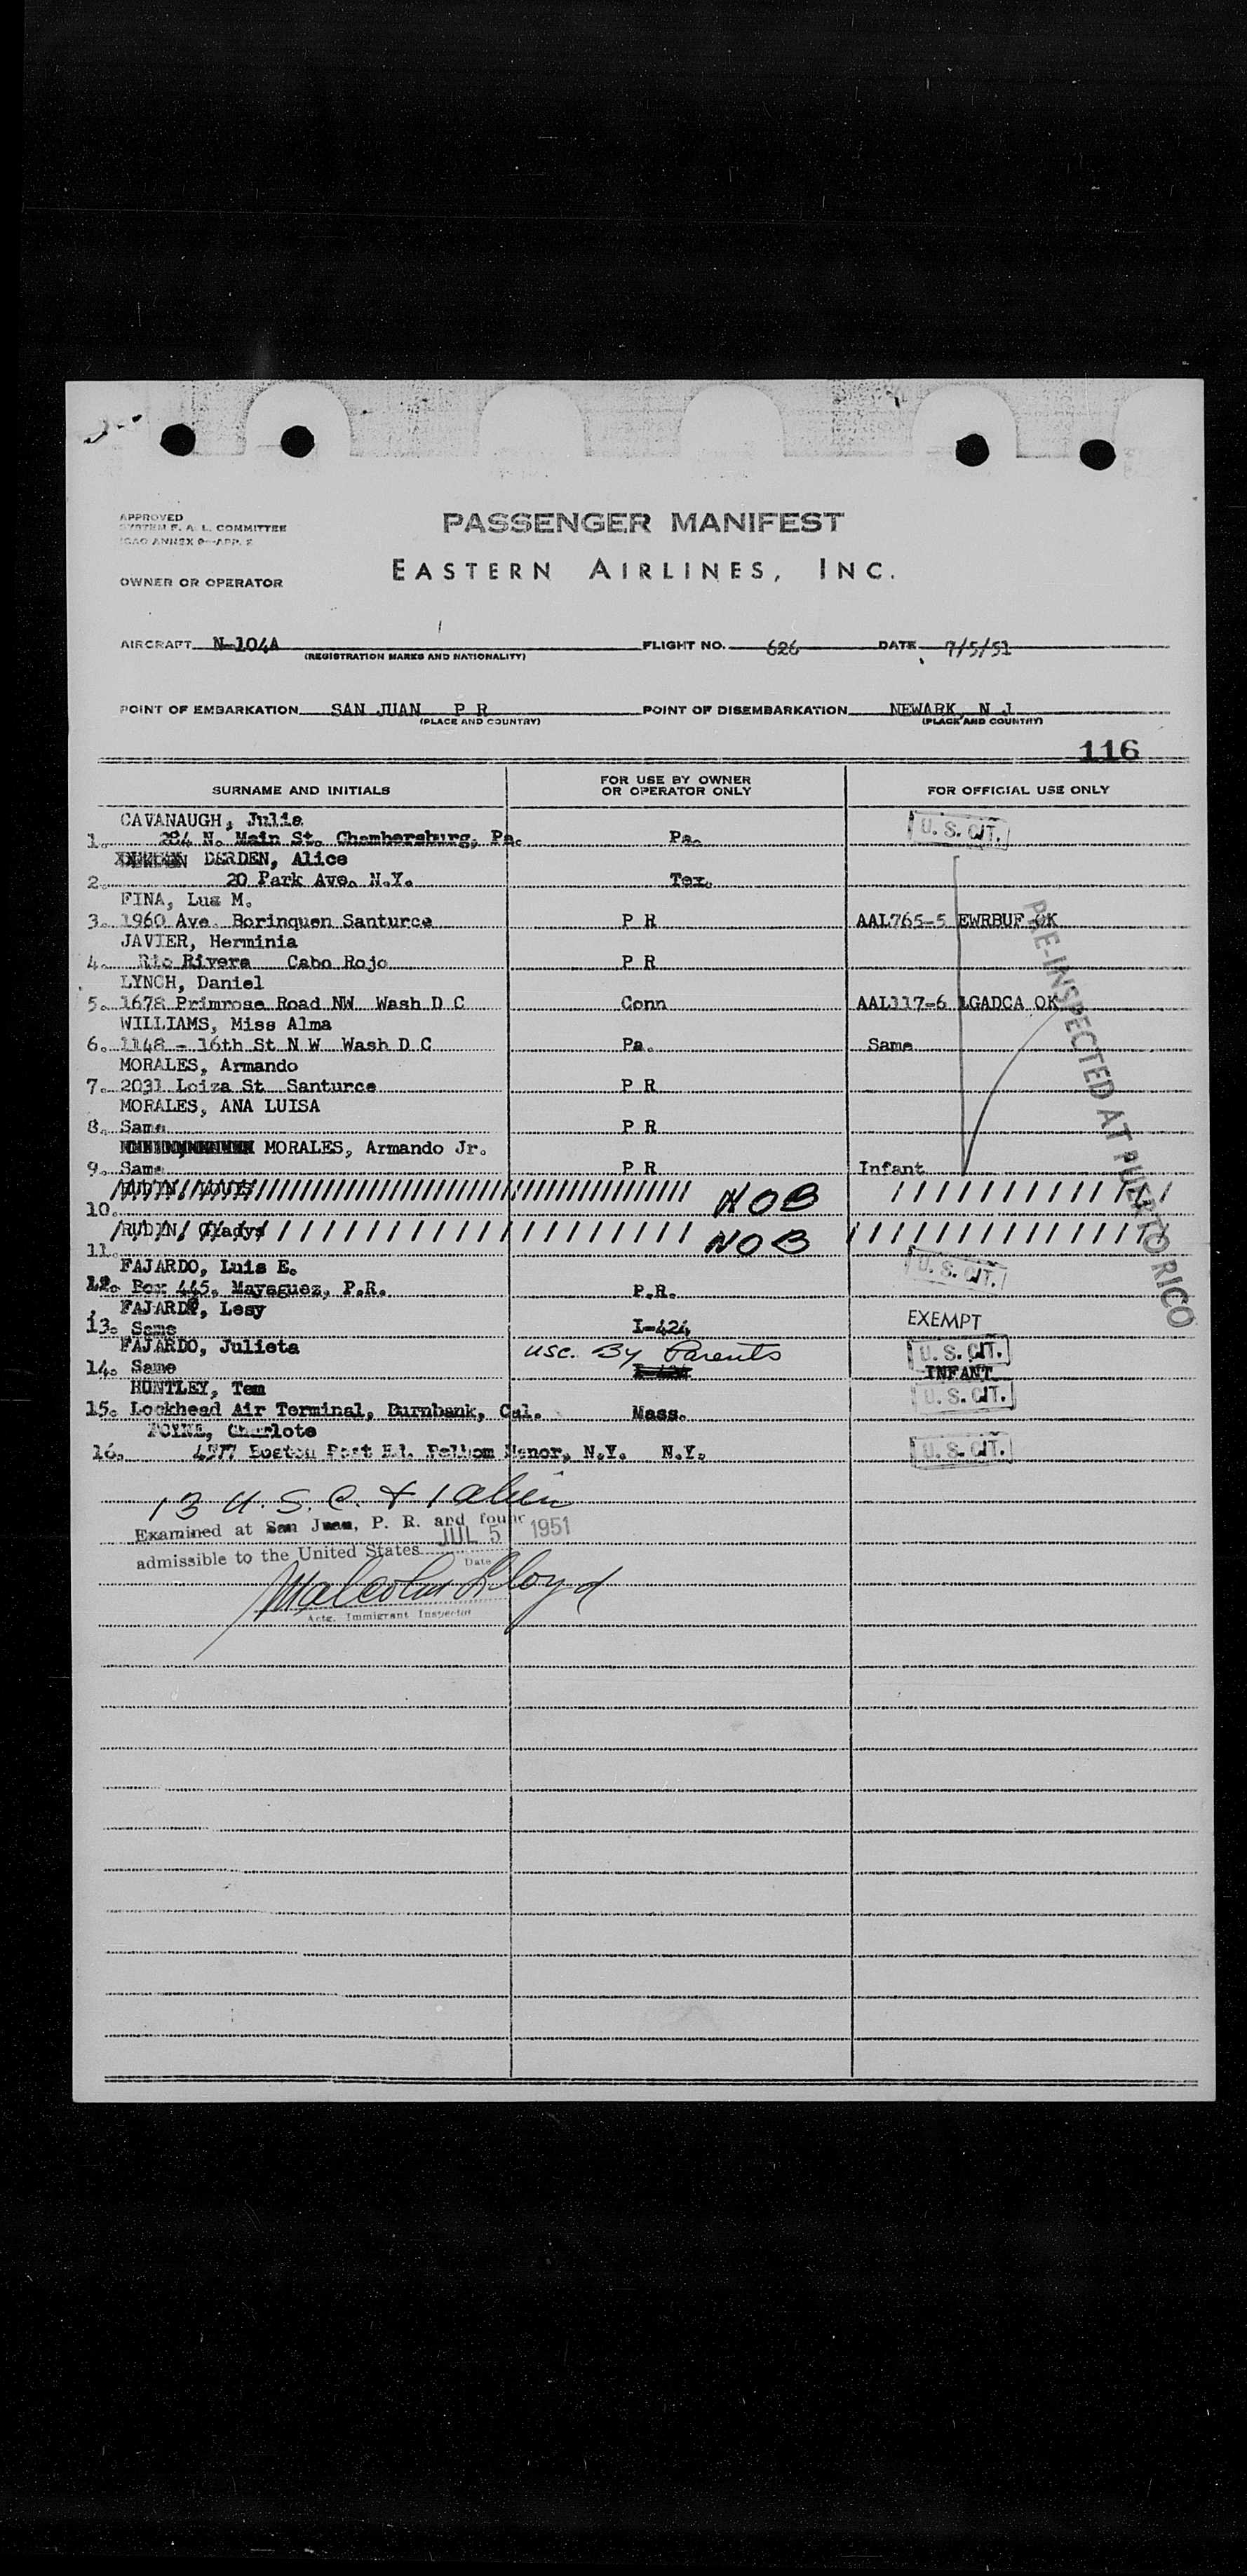 APPROVED
SYSTEM F. A. L. COMMITTEE
ICAO ANNEX 9—APP. E
PASSENGER MANIFEST
EASTERN AIRLINES, INC.
OWNER OR OPERATOR
AIRCRAFT N-104A FLIGHT NO. 626 DATE 7/5/51
(REGISTRATION MARKS AND NATIONALITY)
POINT OF EMBARKATION SAN JUAN P R POINT OF DISEMBARKATION NEWARK, N J
(PLACE AND COUNTRY) (PLACE AND COUNTRY)
116
SURNAME AND INITIALS FOR USE BY OWNER OR OPERATOR ONLY FOR OFFICIAL USE ONLY
CAVANAUGH, Julia U. S. CIT.
1. 284 N. Main St. Chambersburg, Pa. Pa.
DARDEN, Alice
2. 20 Park Ave. N.Y. Tex.
FINA, Luz M.
3. 1960 Ave. Borinquen Santurce P R AAL765-5 EWRBUF OK
JAVIER, Herminia
4. Rio Rivera Cabo Rojo P R
LYNCH, Daniel
5. 1678 Primrose Road NW Wash D C Conn AAL117-6 LGADCA OK
WILLIAMS, Miss Alma
6. 1148 - 16th St N W Wash D C Pa. Same
MORALES, Armando
7. 2031 Loiza St Santurce P R
MORALES, ANA LUISA
8. Same P R
MORALES, Armando Jr.
9. Same P R Infant
PRE-INSPECTED AT PUERTO RICO
10. NOB
RUDIN, Gladys
11. NOB
FAJARDO, Luis E. U. S. CIT.
12. Box 445, Mayaguez, P.R. P.R.
FAJARDO, Lesy EXEMPT
13. Same I-424
FAJARDO, Julieta usc. By Parents U. S. CIT.
14. Same INFANT
HUNTLEY, Tem U. S. CIT.
15. Lockhead Air Terminal, Burnbank, Cal. Mass.
Charlote U. S. CIT.
16. Boston Post Rd. Pelhom Manor, N.Y. N.Y.
13 U. S. C. & 1 alien
Examined at San Juan, P. R. and found
admissible to the United States JUL 5 1951
Date
Malcolm Lloyd
Actg. Immigrant Inspector